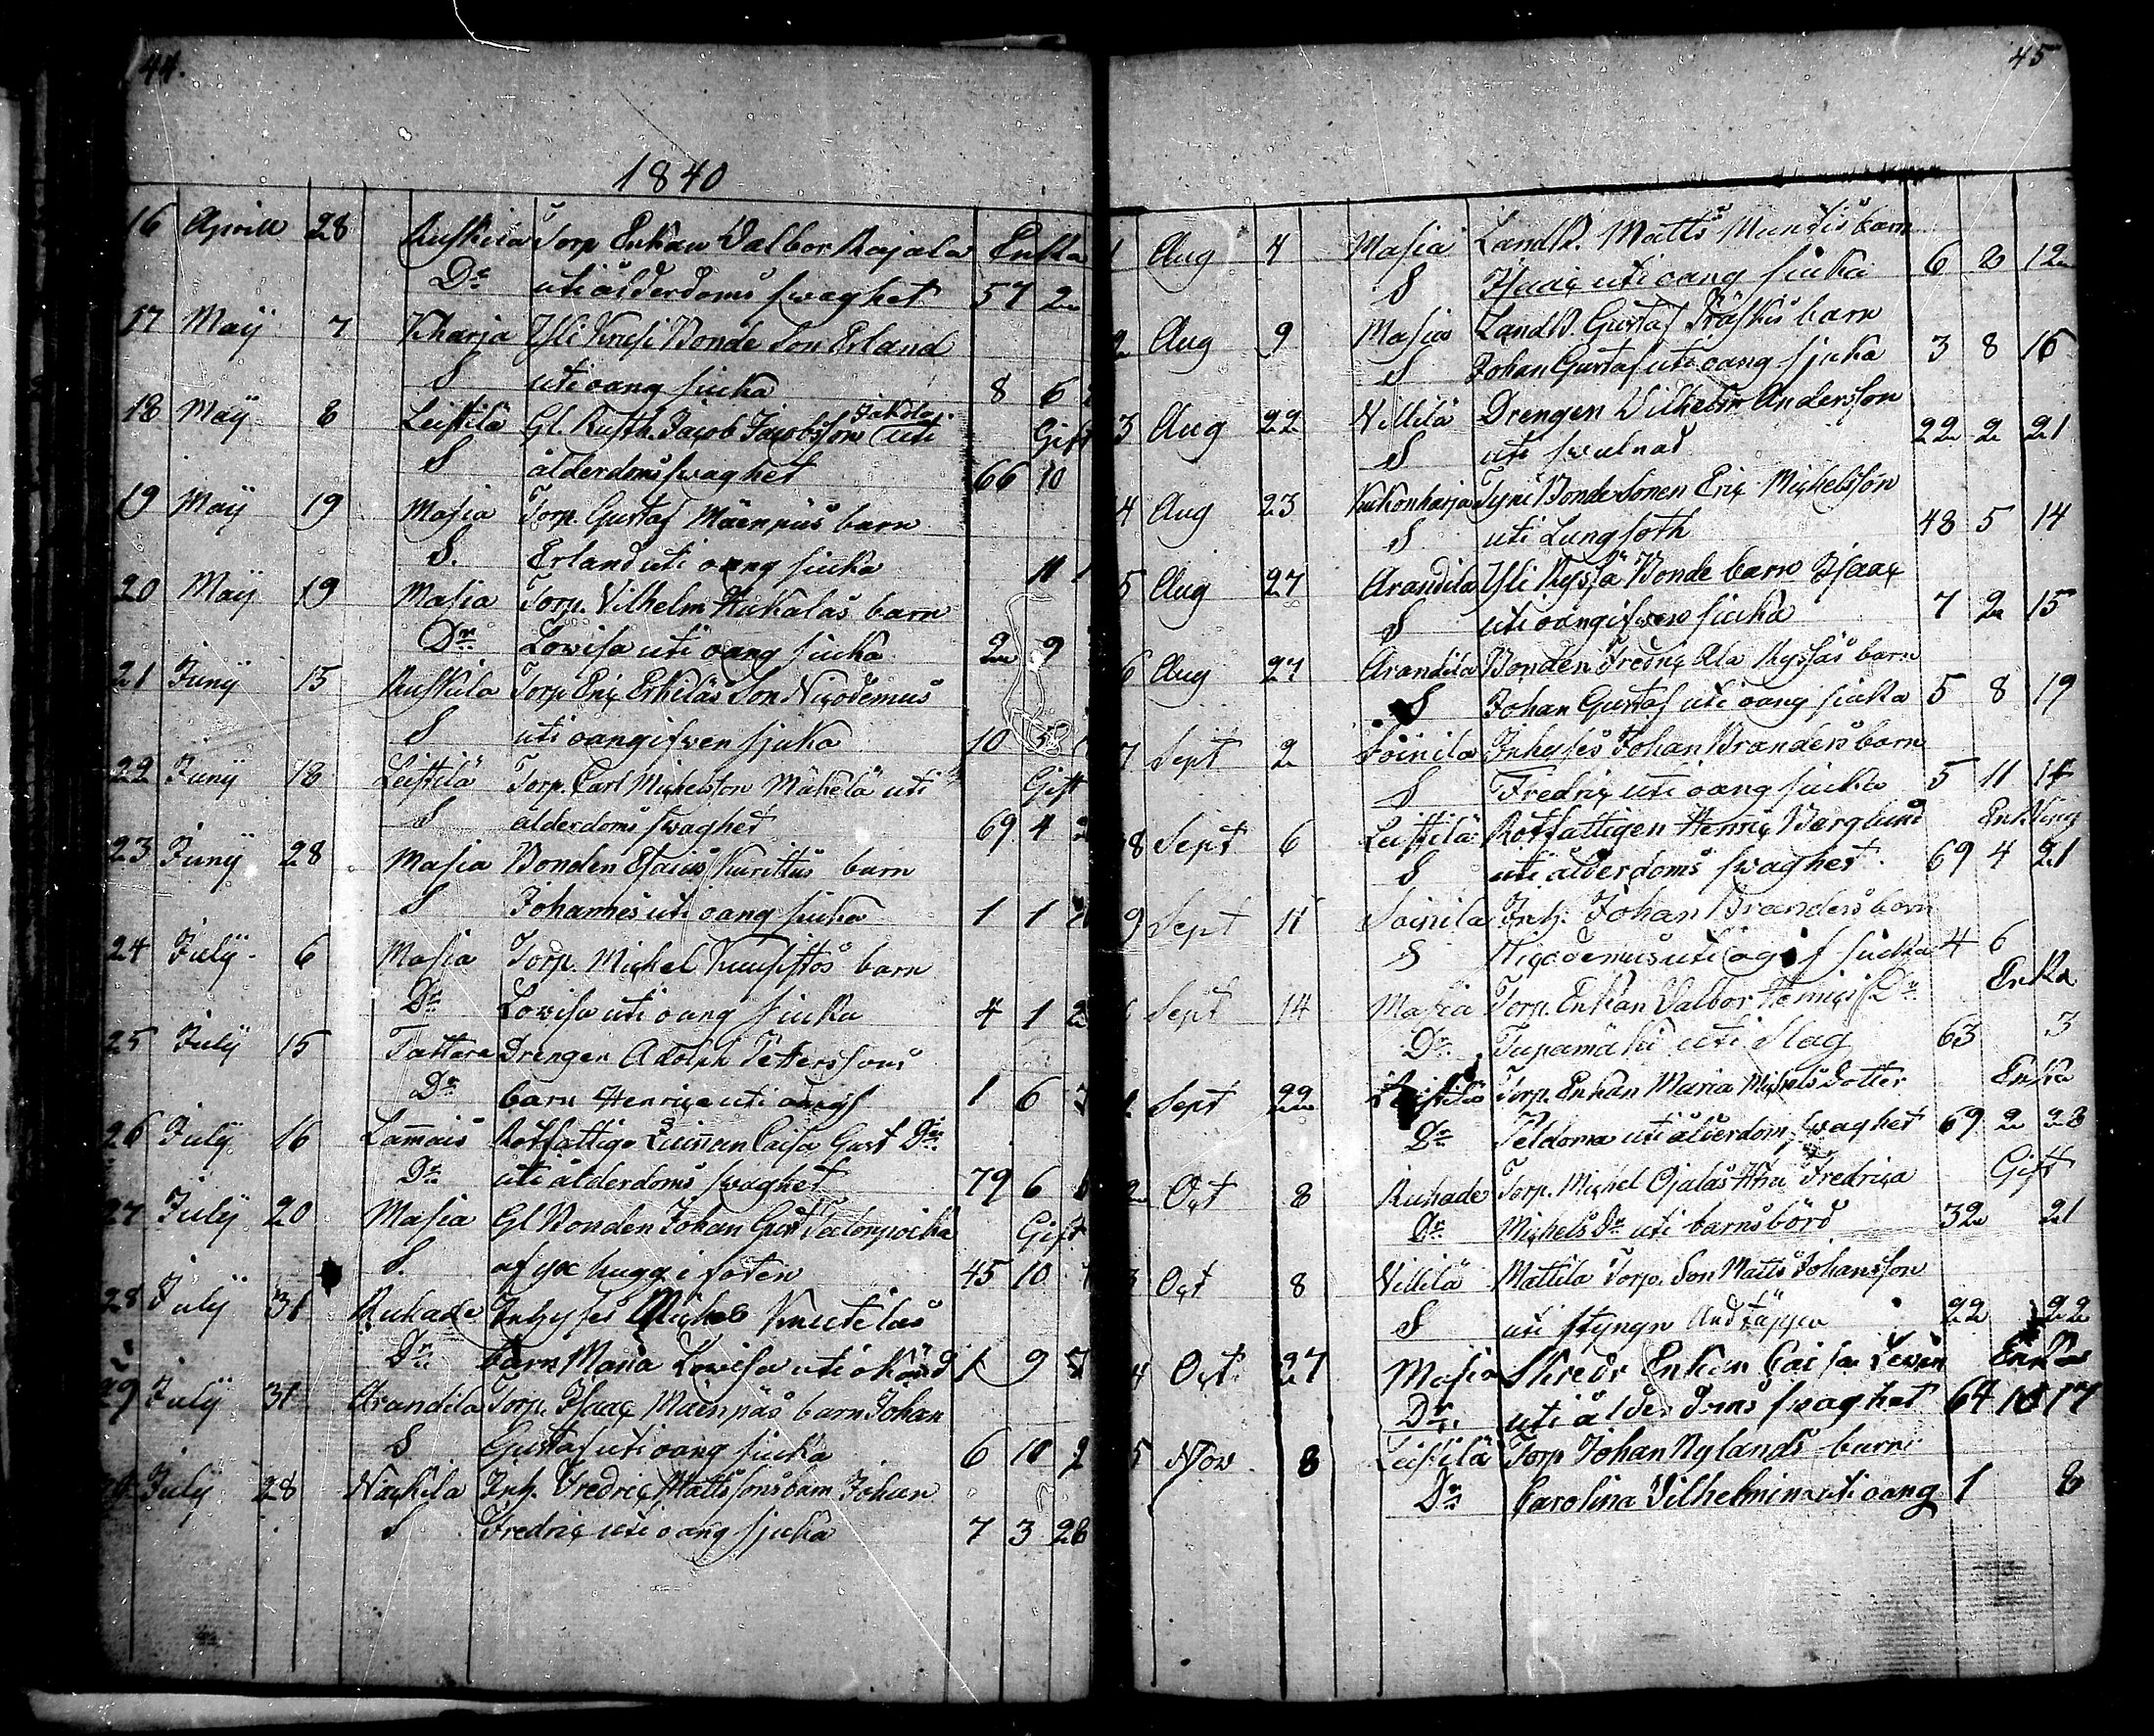 44.
1840
16 Aprill 28 Ruskila Torp Enkan Valbor Rajala Enka
Dr uti ålderdoms swaghet 57 2
17 Maij 7 Kharja Yli Krusi Bonde Son Erland
S uti oang sjuka 8 6
18 Maij 8 Leistilä Gl. Rusth. Jacob Jacobsson Jakola uti Gift
S ålderdoms swaghet 66 10
19 Maij 19 Masia Torp. Gustaf Mäenpäs barn
S. Erland uti oang sjuka 11
20 Maij 19 Masia Torp. Vilhelm Hukalas barn
Dr Lovisa uti oang sjuka 2 9
21 Junij 15 Ruskila Torp Eric Erkiläs Son Nicodemus
S uti oangifwen sjuka 10 5
22 Junij 18 Leistilä Torp. Carl Michelsson Mäkelä uti Gift
S ålderdoms swaghet 69 4 2
23 Junij 28 Masia Bonden Esaias Kurittus barn
S Johannes uti oang sjuka 1 1 2
24 Julij 6 Masia Torp. Michel Kuusistos barn
Dr Lovisa uti oang sjuka 4 1 2
25 Julij 15 Tattara Drengen Adolph Pettersson
Dr barn Henrica uti oangf 1 6
26 Julij 16 Lammais Rotfattige Caisa Gust Dr
Dr uti ålderdoms swaghet 79 6
27 Julij 20 Masia Gl Bonden Johan Gust Talonpoika Gift
S. af yx hugg i foten 45 10
28 Julij 31 Ruhade Inhyses Michel Knutilas
Dr barn Maria Lovisa uti okänd 1 9
29 Julij 31 Arandila Torp. Isaac Mäenpäs barn Johan
S Gustaf uti oang sjuka 6 10 2
Julij 28 Nackila Inh. Fredric Mattssons barn Johan
S Fredric uti oang sjuka 7 3 26
45
1 Aug 4 Masia Landb. Matts Muntis barn
S Isaac uti oang sjuka 6 2 12
2 Aug 9 Masia Landb. Gustaf Präskis barn
S Johan Gustaf uti oang sjuka 3 8 16
3 Aug 22 Villilä Drengen Vilhelm Andersson
S uti swulnad 22 2 21
4 Aug 23 Kukonharja Tyni Bonde Sonen Eric Michelsson
S uti Lungsoth 48 5 14
5 Aug 27 Arandila Yli Kyssä Bonde barn Isaac
S uti oangifwen sjuka 7 2 15
6 Aug 27 Arandila Bonden Fredric Ala Kyssäs barn
S Johan Gustaf uti oang sjuka 5 8 19
7 Sept 2 Soinila Inhyses Johan Branders barn
S Fredric uti oang sjuka 5 11 14
8 Sept 6 Leistilä Rotfattigen Henric Berglund Enkling
S uti ålderdoms swaghet 69 4 21
9 Sept 11 Soinila Inh. Johan Branders barn
S Nicodemus uti sjuka 4 6
Sept 14 Masia Torp. Enkan Valbor Henrics Dr Enka
Dr. Tupamäki uti Slag 63 3
1 Sept 22 Leistilä Torp. Enkan Maria Michels dotter Enka
Dr Peldoma uti ålderdoms swaghet 69 2 28
2 Oct 8 Ruhade Torp. Michel Ojalas Hru Fredrica Gift
Dr Michels Dr uti barnsbörd 32 21
3 Oct 8 Villilä Mattila Torp. Son Matts Johansson
S uti styngn Andtäppa 22 22
4 Oct. 27 Masia Skredr Enkan Caisa Levin Enka
Dr. uti ålderdoms swaghet 64 10 17
5 Nov 8 Leistilä Torp Johan Nylands barn
Dr Carolina Vilhelmina uti oang 1 8